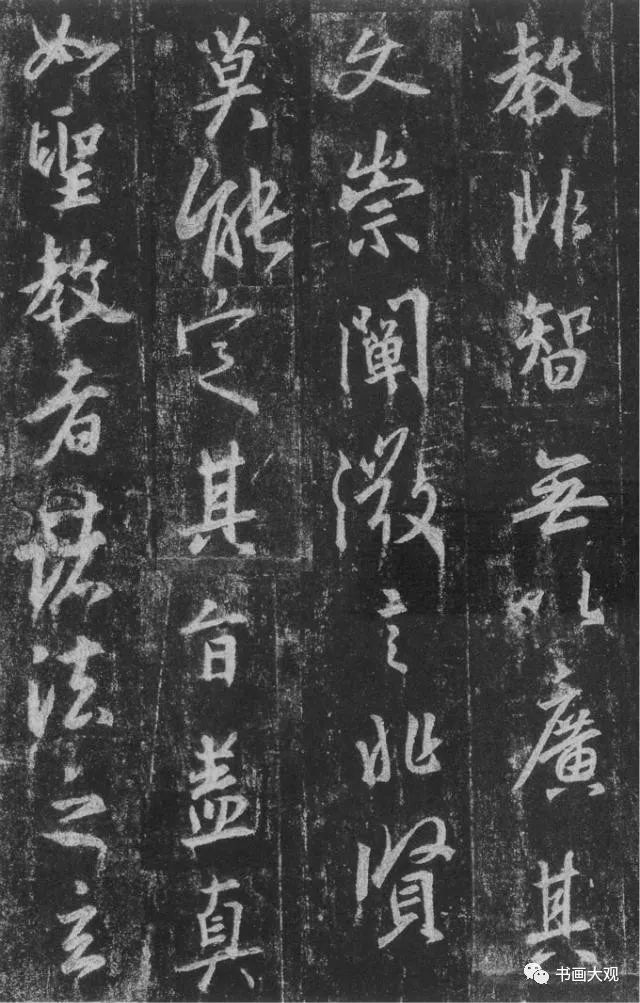 教非智無以廣其
文崇闡微言非賢
莫能定其旨盖真
如聖教者諸法之玄
书画大观